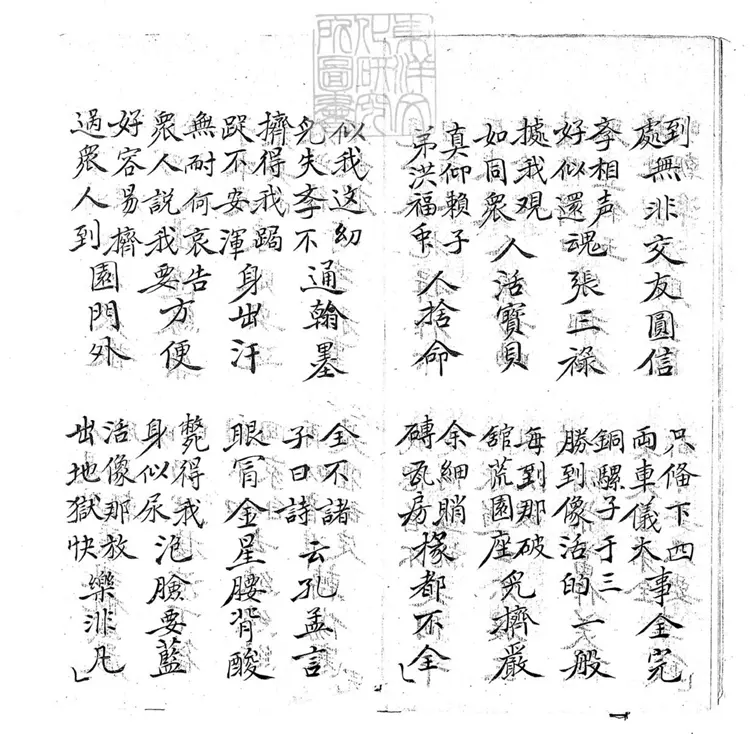 東洋文化研究所圖書
到處無非交友圓信
只俻下四両車儀大事全完
学相声好似還魂張三祿
銅騾子于三勝到像活的一般
據我观如同衆人活寳貝
每到那破舘荒園座兒擠嚴
真仰賴子弟洪福人捨命
余細磚瓦房椽都不全
似我这幼兒失学不通翰墨
全不諳子曰詩云孔孟言
擠得我跼踀不安渾身出汗
眼冐金星腰背酸
無耐何哀告衆人説我要方便
甏得我身似尿泡臉要藍
好容易擠過衆人到園門外
活像那放出地獄快樂非凡